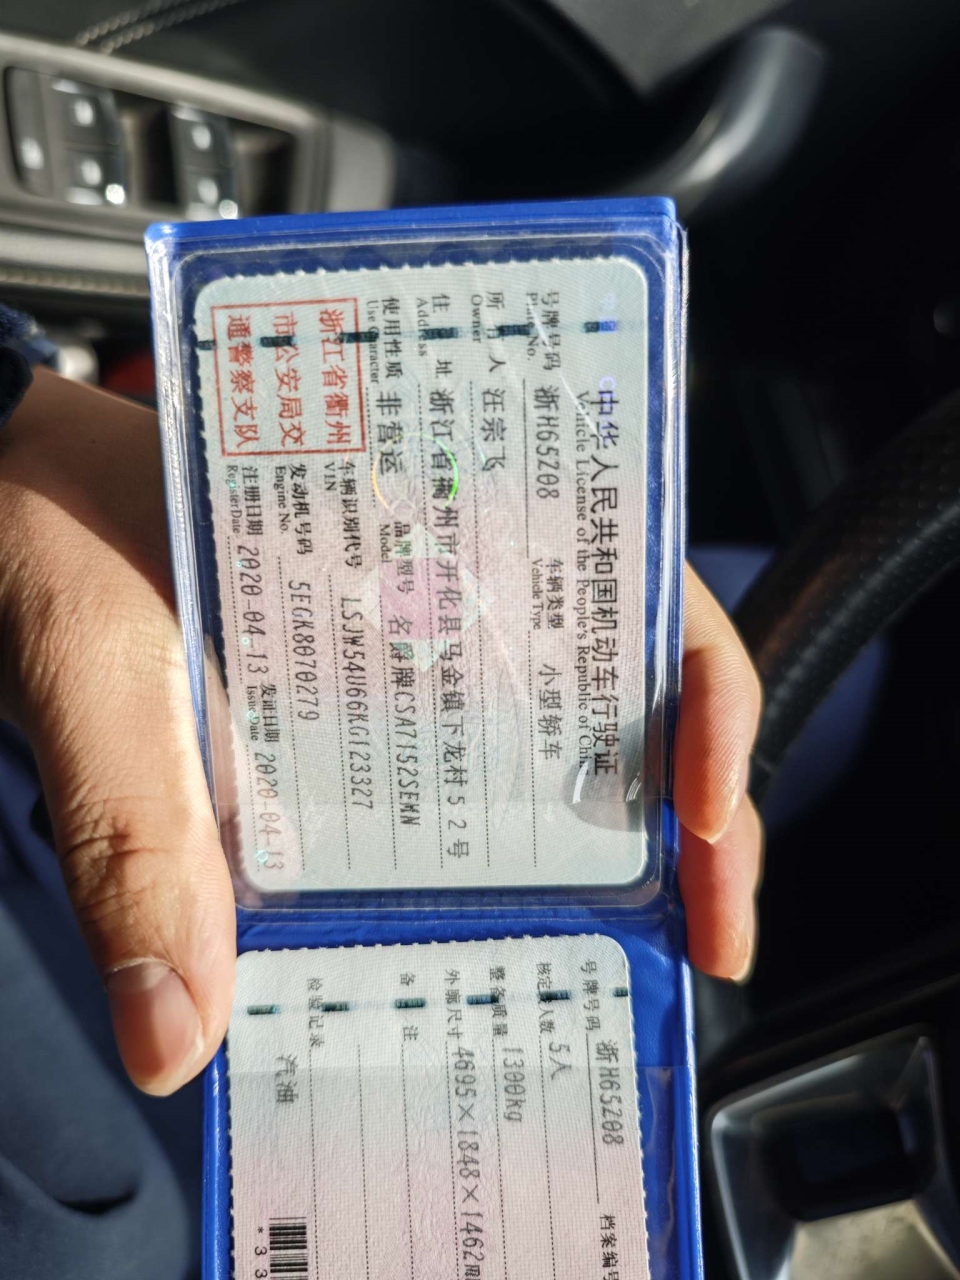 中华人民共和国机动车行驶证
Vehicle License of the People's Republic of Chin
号牌号码 浙H65Z08 车辆类型 小型轿车
Plate No. Vehicle Type
所有人 汪宗飞
Owner
住址 浙江省衢州市开化县马金镇下龙村52号
Address
使用性质 非营运 品牌型号 名爵牌CSA7152SEMN
Use Character Model
浙江省衢州
市公安局交
通警察支队
车辆识别代号 LSJW54U66KG123327
VIN
发动机号码 5EGK8070279
Engine No.
注册日期 2020-04-13 发证日期 2020-04-13
Register Date Issue Date
号牌号码 浙H65Z08 档案编号
核定载人数 5人
整备质量 1300kg
外廓尺寸 4695×1848×1462m
备注
检验记录
汽油
*33